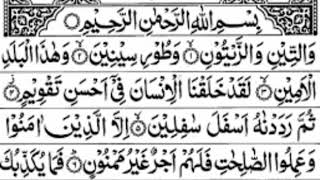 بِسْمِ اللّٰهِ الرَّحْمٰنِ الرَّحِيْمِ
وَالتِّيْنِ وَالزَّيْتُوْنِ ۙ‏﴿۱﴾ وَطُوْرِ سِيْنِيْنَ ۙ‏﴿۲﴾ وَهٰذَا الْبَلَدِ
الْاَمِيْنِ ۙ‏﴿۳﴾ لَقَدْ خَلَقْنَا الْاِنْسَانَ فِىْۤ اَحْسَنِ تَقْوِيْمٍ ۖ‏﴿۴﴾
ثُمَّ رَدَدْنٰهُ اَسْفَلَ سٰفِلِيْنَ ۙ‏﴿۵﴾ اِلَّا الَّذِيْنَ اٰمَنُوْا
وَعَمِلُوا الصّٰلِحٰتِ فَلَهُمْ اَجْرٌ غَيْرُ مَمْنُوْنٍ ؕ‏﴿۶﴾ فَمَا يُكَذِّبُكَ